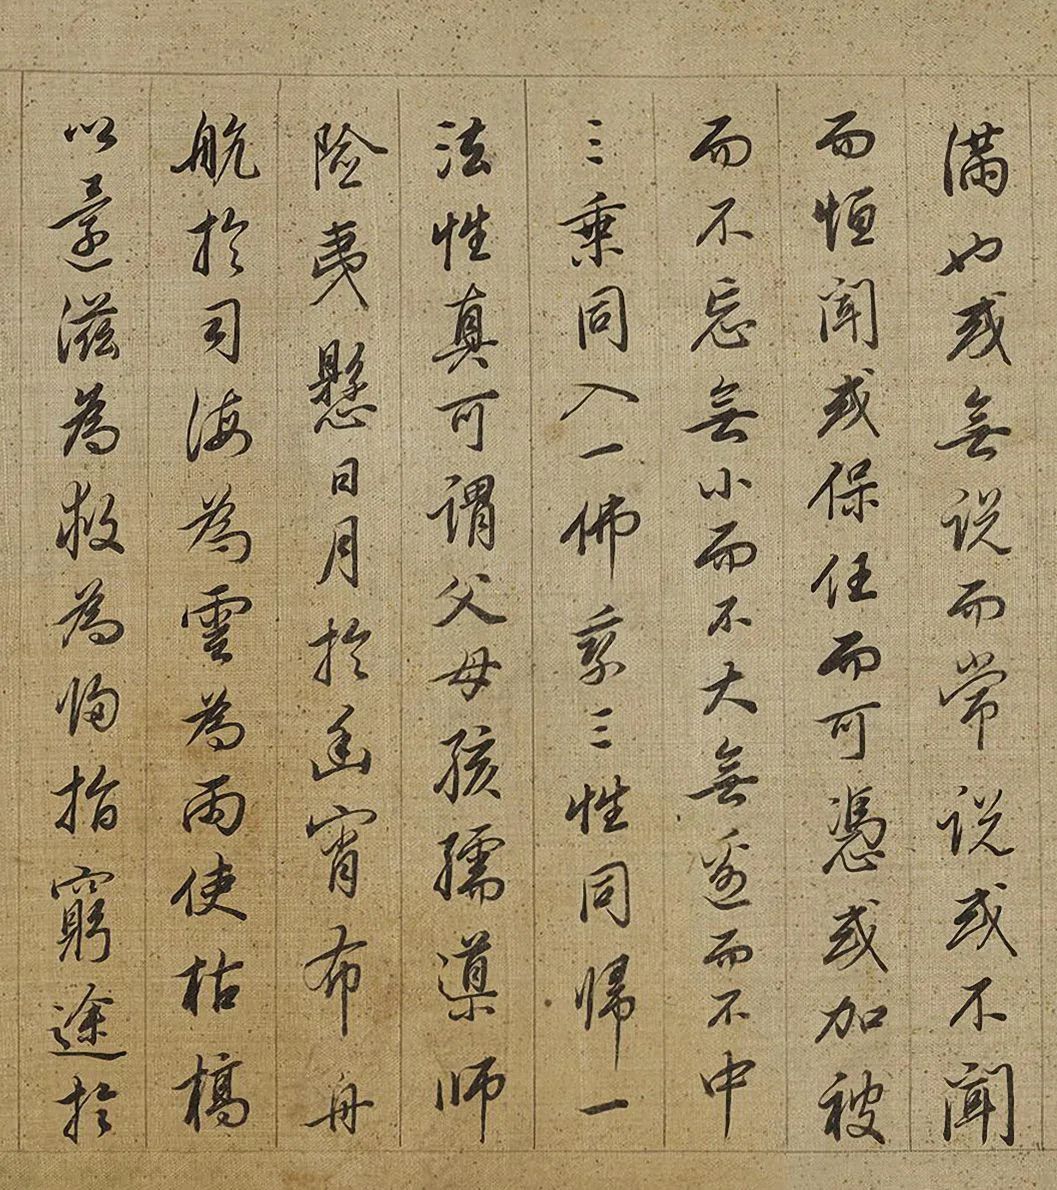 滿也或無説而常説或不聞
而恒聞或保任而可憑或加被
而不忘無小而不大無邊而不中
三乘同入一佛乘三性同歸一
法性真可謂父母孩孺導師
險夷懸日月於幽宵布舟
航於司海為雲為雨使枯槁
以還滋為救為歸指窮途於